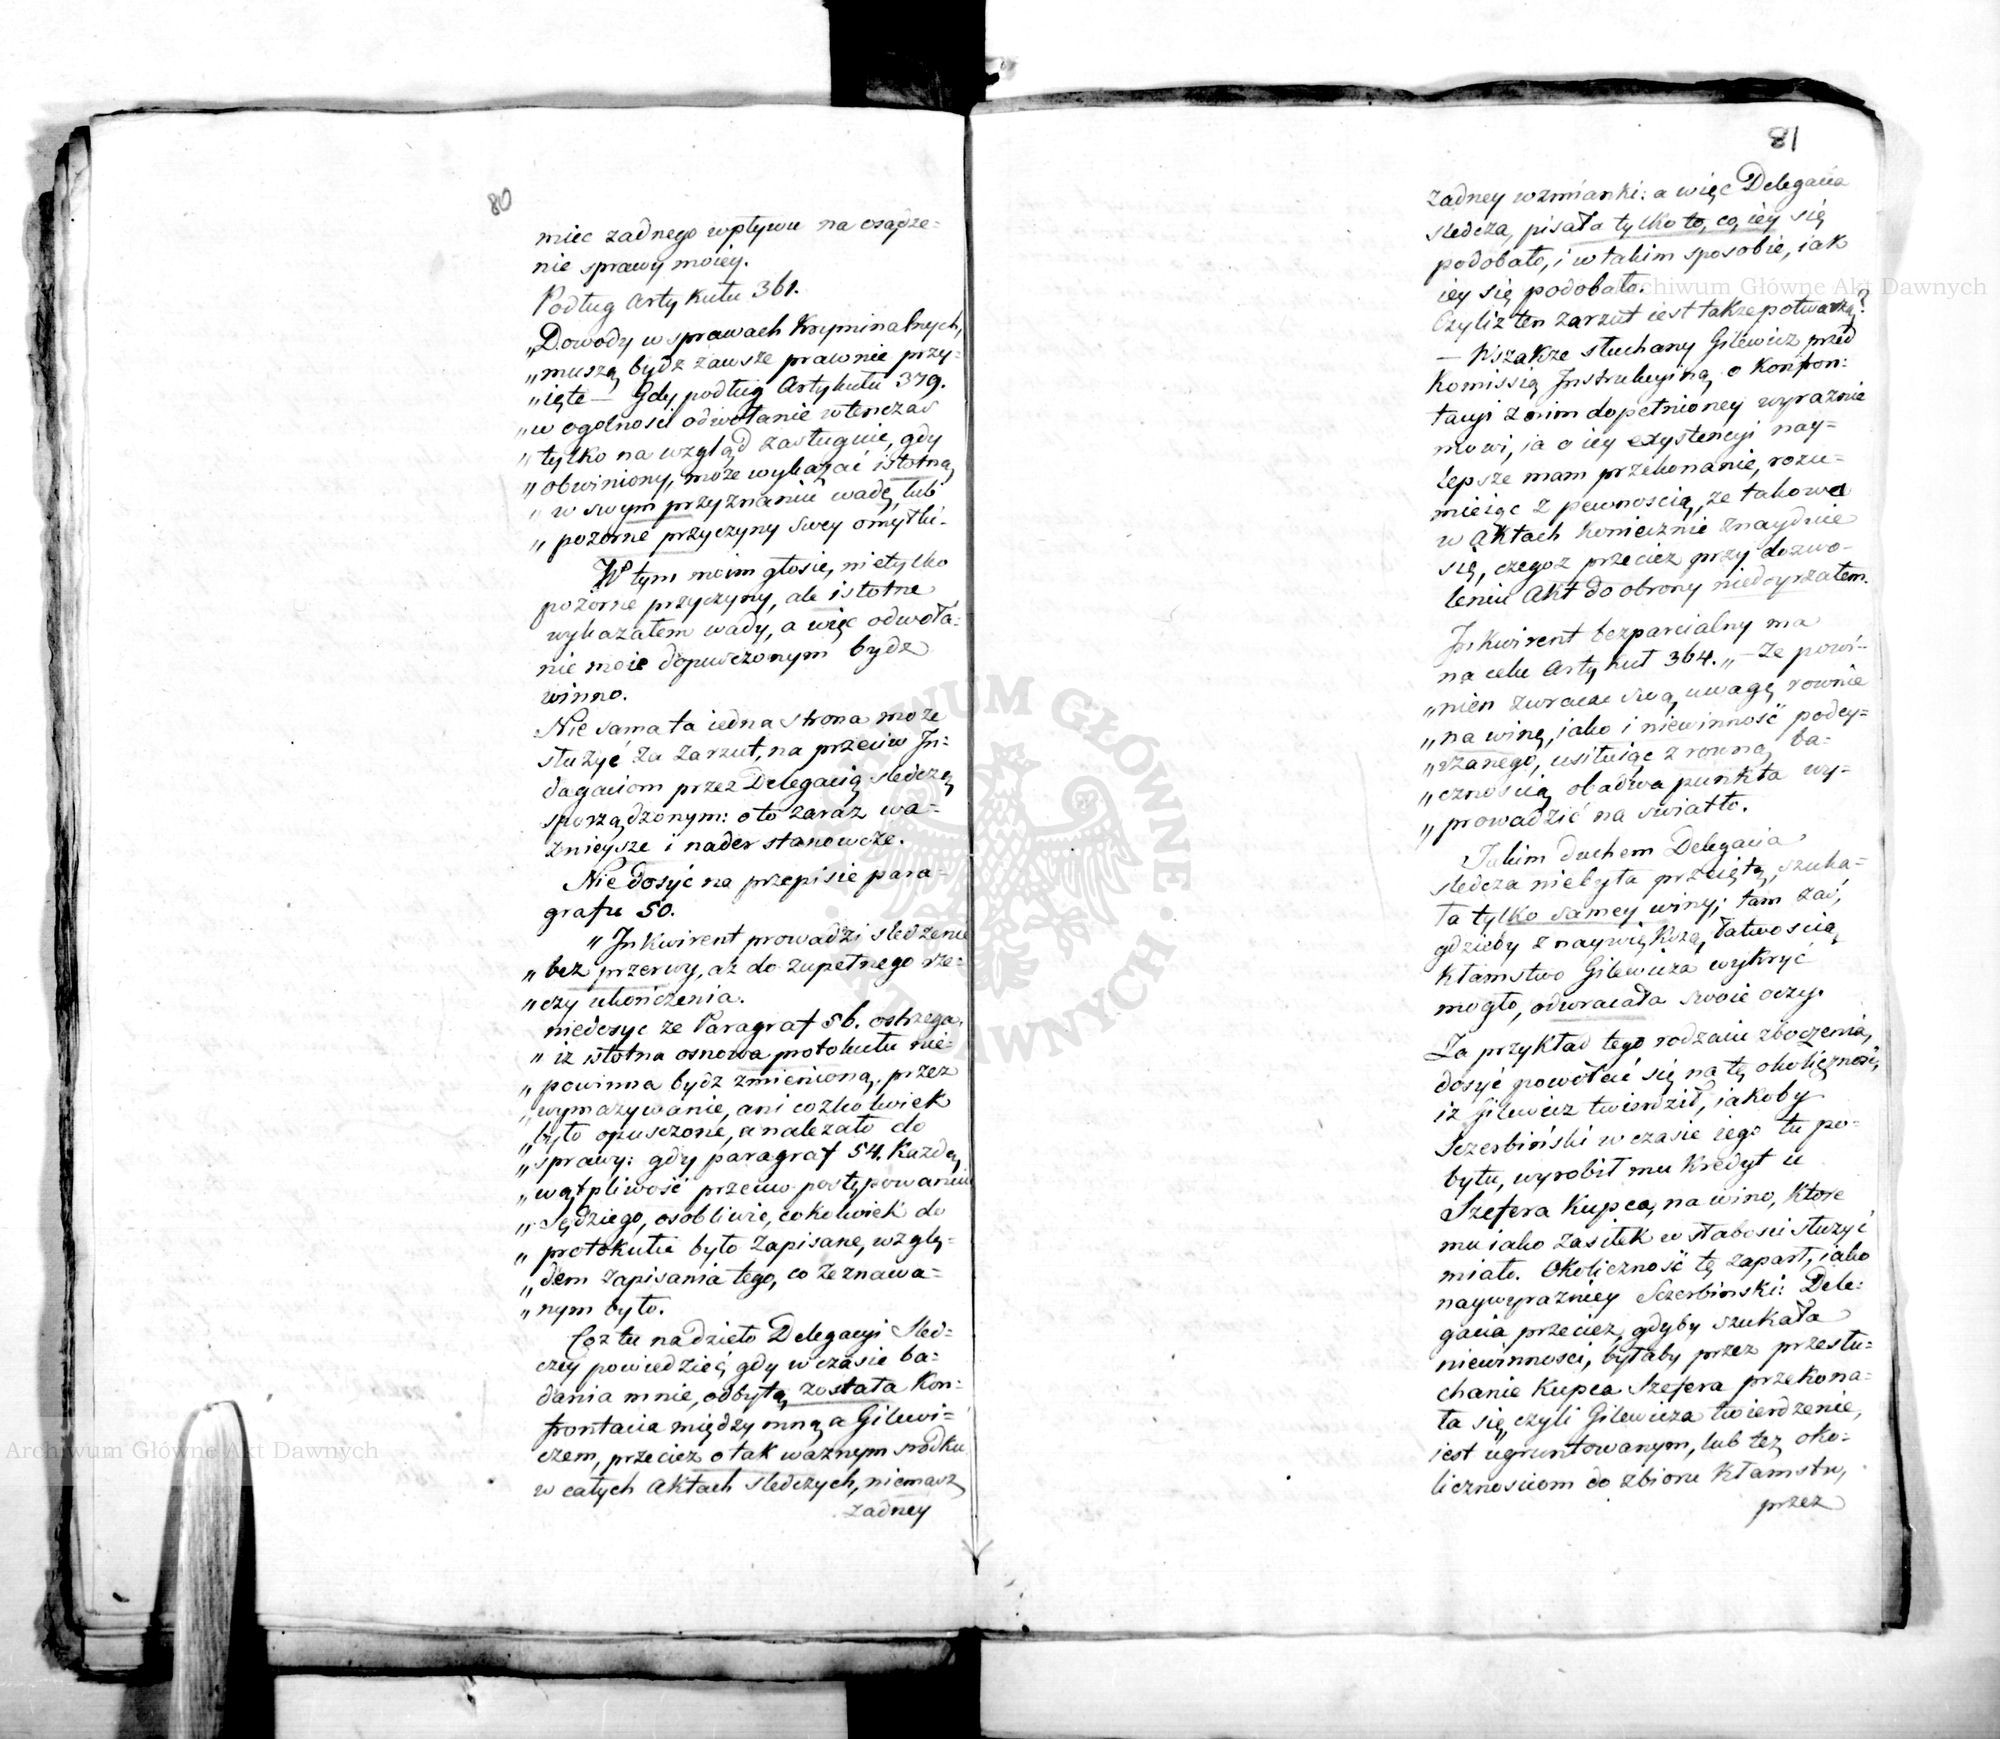 80
miec zadnego wpływu na osądze=
nie sprawy moiey.
Podług Artykułu 361.
„Dowody w sprawach Kryminalnych,
„muszą bydz zawsze prawnie przy=
„ięte — Gdy podług Artykułu 379.
„w ogolnosci odwołanie wtenczas
„tylko na wzgląd zasługuie, gdy
„obwiniony, może wykazać istotną
„w swym przyznaniu wadę, lub
„pozorne przyczyny swey omyłki.
W tym moim głosie, nietylko
pozorne przyczyny, ale istotne
wykazałem wady, a więc odwoła=
nie moie dopusczonym bydz
winno.
Nie sama ta iedna strona może
służyć za zarzut, na przeciw In=
dagaciom przez Delegacią sledczą
sporządzonym: oto zaraz wa=
znieysze i nader stanowcze.
Nie dosyć na przepisie para=
grafu 50.
„Inkwirent prowadzi sledzenie
„bez przerwy, aż do zupełnego rze=
„czy ukończenia.
niedosyc ze Paragraf 56. ostrzega,
„iz istotna osnowa protokułu nie=
„powinna bydz zmienioną przez
„wymazywanie, ani cozkolwiek
„było opusczone, a nalezało do
„sprawy: gdy paragraf 54. Kazdą
„wątpliwość przeciw postępowaniu
„Sędziego, osobliwie, cokolwiek do
„protokułu było zapisane, wzglę=
„dem zapisania tego, co zeznawa=
„nym było.
Coz tu na dzieło Delegacyi Sled=
czey powiedzieć, gdy w czasie ba=
dania mnie, odbytą została Kon=
frontacia między mną a Gilewi=
czem, przeciez o tak waznym srodku
w całych Aktach sledczych, niemasz
zadney
81
zadney wzmianki: a więc Delegacia
sledcza, pisała tylko to, co iey się
podobało, i w takim sposobie, iak
iey się podobało.
Czyliz ten zarzut iest takze potwarzą?
— Wszakze słuchany Gilewicz przed
Komissią Instrukcyiną o konfron=
tacyi z nim dopełnioney wyraznie
mowi, ia o iey exystencyi nay=
lepsze mam przekonanie, rozu=
mieiąc z pewnoscią, ze takowa
w Aktach koniecznie znayduie
się, czegoz przeciez przy dozwo=
leniu Akt do obrony niedoyrzałem.
Inkwirent bezparcialny ma
na celu Artykuł 364. „— Ze powi=
„nien zwracac swą uwagę rownie
„na winę, iako i niewinność podey=
„rzanego, usiłuiąc z rowną ba=
„cznoscią obadwa punkta wy=
„prowadzić na swiatło.
Takim duchem Delegacia
sledcza niebyła przeiętą, szuka=
ła tylko samey winy; tam zaś,
gdzieby z naywiększą łatwoscią
kłamstwo Gilewicza wykryć
mogło, odwracała swoie oczy.
Za przykład tego rodzaiu zboczenia,
dosyć powołać się na tę okoliczność,
iz Gilewicz twierdził, iakoby
Sczerbiński w czasie iego tu po=
bytu, wyrobił mu Kredyt u
Szefera Kupca, na wino, ktore
mu iako zasiłek w słabosci służyć
miało. Okoliczność tę zaparł, iako
naywyrazniey Sczerbinski: Dele=
gacia przeciez, gdyby szukała
niewinnosci, byłaby przez przesłu=
chanie Kupca Szefera przekona=
ła się, czyli Gilewicza twierdzenie,
iest ugruntowanym, lub tez oko=
licznosciom do zbioru kłamstw,
przez
Archiwum Główne Akt Dawnych
Archiwum Główne Akt Dawnych
ARCHIWUM GŁÓWNE AKT DAWNYCH